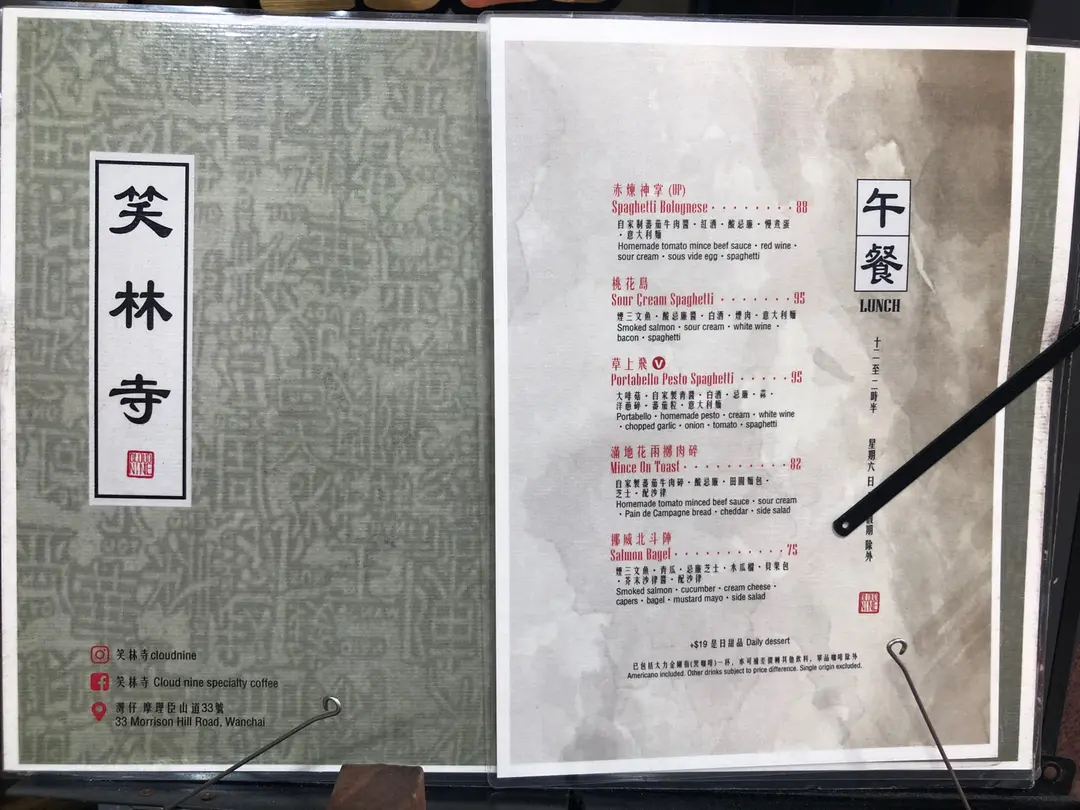 笑林寺
CLOUD NINE
笑林寺cloudnine
笑林寺 Cloud nine specialty coffee
灣仔 摩理臣山道33號
33 Morrison Hill Road, Wanchai
赤煉神掌 (UP)
Spaghetti Bolognese · · · · · · · · 88
自家制蕃茄牛肉醬·紅酒·酸忌廉·慢煮蛋
·意大利麵
Homemade tomato mince beef sauce · red wine ·
sour cream · sous vide egg · spaghetti
桃花島
Sour Cream Spaghetti · · · · · · · 95
煙三文魚·酸忌廉醬·白酒·煙肉·意大利麵
Smoked salmon · sour cream · white wine ·
bacon · spaghetti
草上飛 V
Portabello Pesto Spaghetti · · · · · 95
大啡菇·自家製青醬·白酒·忌廉·蒜·
洋蔥碎·蕃茄粒·意大利麵
Portabello · homemade pesto · cream · white wine
· chopped garlic · onion · tomato · spaghetti
滿地花雨擲肉碎
Mince On Toast · · · · · · · · · · 82
自家製蕃茄牛肉碎·酸忌廉·田園麵包·
芝士·配沙律
Homemade tomato minced beef sauce · sour cream
· Pain de Campagne bread · cheddar · side salad
挪威北斗陣
Salmon Bagel · · · · · · · · · · · 75
煙三文魚·青瓜·忌廉芝士·水瓜榴·貝果包
·芥末沙律醬·配沙律
Smoked salmon · cucumber · cream cheese ·
capers · bagel · mustard mayo · side salad
+$19 是日甜品 Daily dessert
已包括大力金剛指(黑咖啡)一杯，亦可補差價轉其他飲料，單品咖啡除外
Americano included. Other drinks subject to price difference. Single origin excluded.
午餐
LUNCH
十二至二時半 星期六日 假期除外
CLOUD NINE